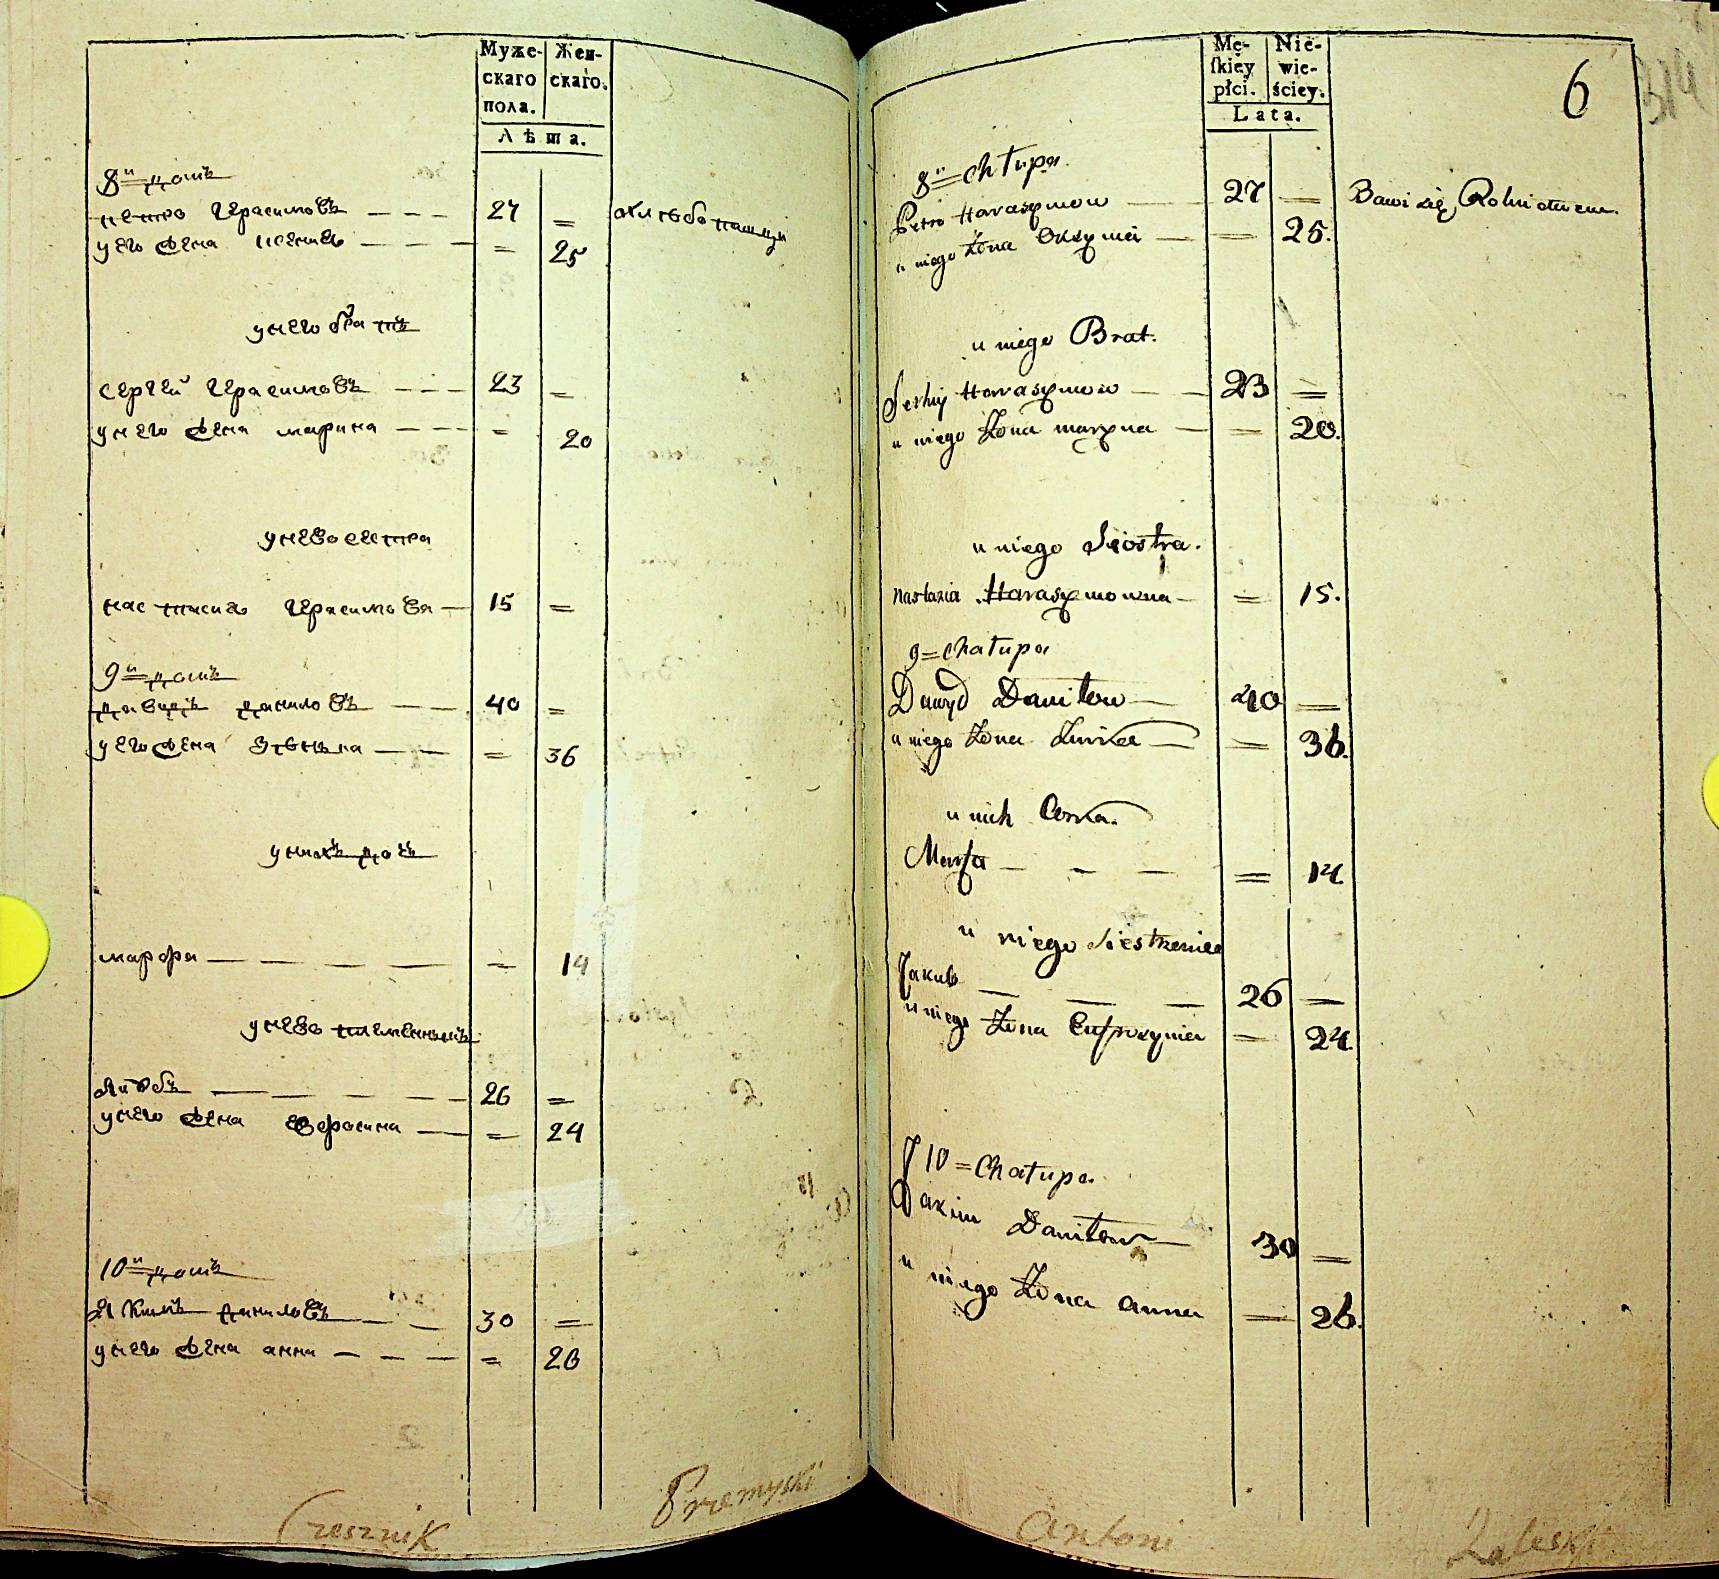 Муже-
скаго
пола.
Жен-
скаго.
Лѣта.
8й домъ
петро Герасимовъ 27 =
у его жена ксения = 25
хлѣбопашцы
у него братъ
сергей Герасимовъ 23 =
у него жена марина = 20
у нево сестра
настасия Герасимова 15 =
9й домъ
давидъ даниловъ 40 =
у его жена зѣнька = 36
у нихъ дочь
марфа = 14
у нево племенникъ
Якобъ 26 =
у него жена евфросина = 24
10й домъ
Якимъ даниловъ 30 =
у него жена анна = 26
Czesznik
Przemyski
Mę-
ſkiey
płci.
Nie-
wie-
ściey.
Lata.
6
8" = chałupa.
Petro Harasymow 27 =
u niego Żona Oxynia = 25.
Bawi się Rolnictwem.
u niego Brat.
Serhiy Harasymow 23 =
u niego Żona maryna = 20.
u niego Siostra.
nastazia Harasymowna = 15.
9 = chałupa
Dawyd Daniłow 40 =
u niego Żona Zinka = 36.
u nich Corka.
Marfa = 14
u niego Siestrzeniec
Jakub 26 =
u niego Żona Eufrozynia = 24.
10 = Chałupa.
Jakim Daniłow 30 =
u niego Żona anna = 26.
Antoni
Zaleski